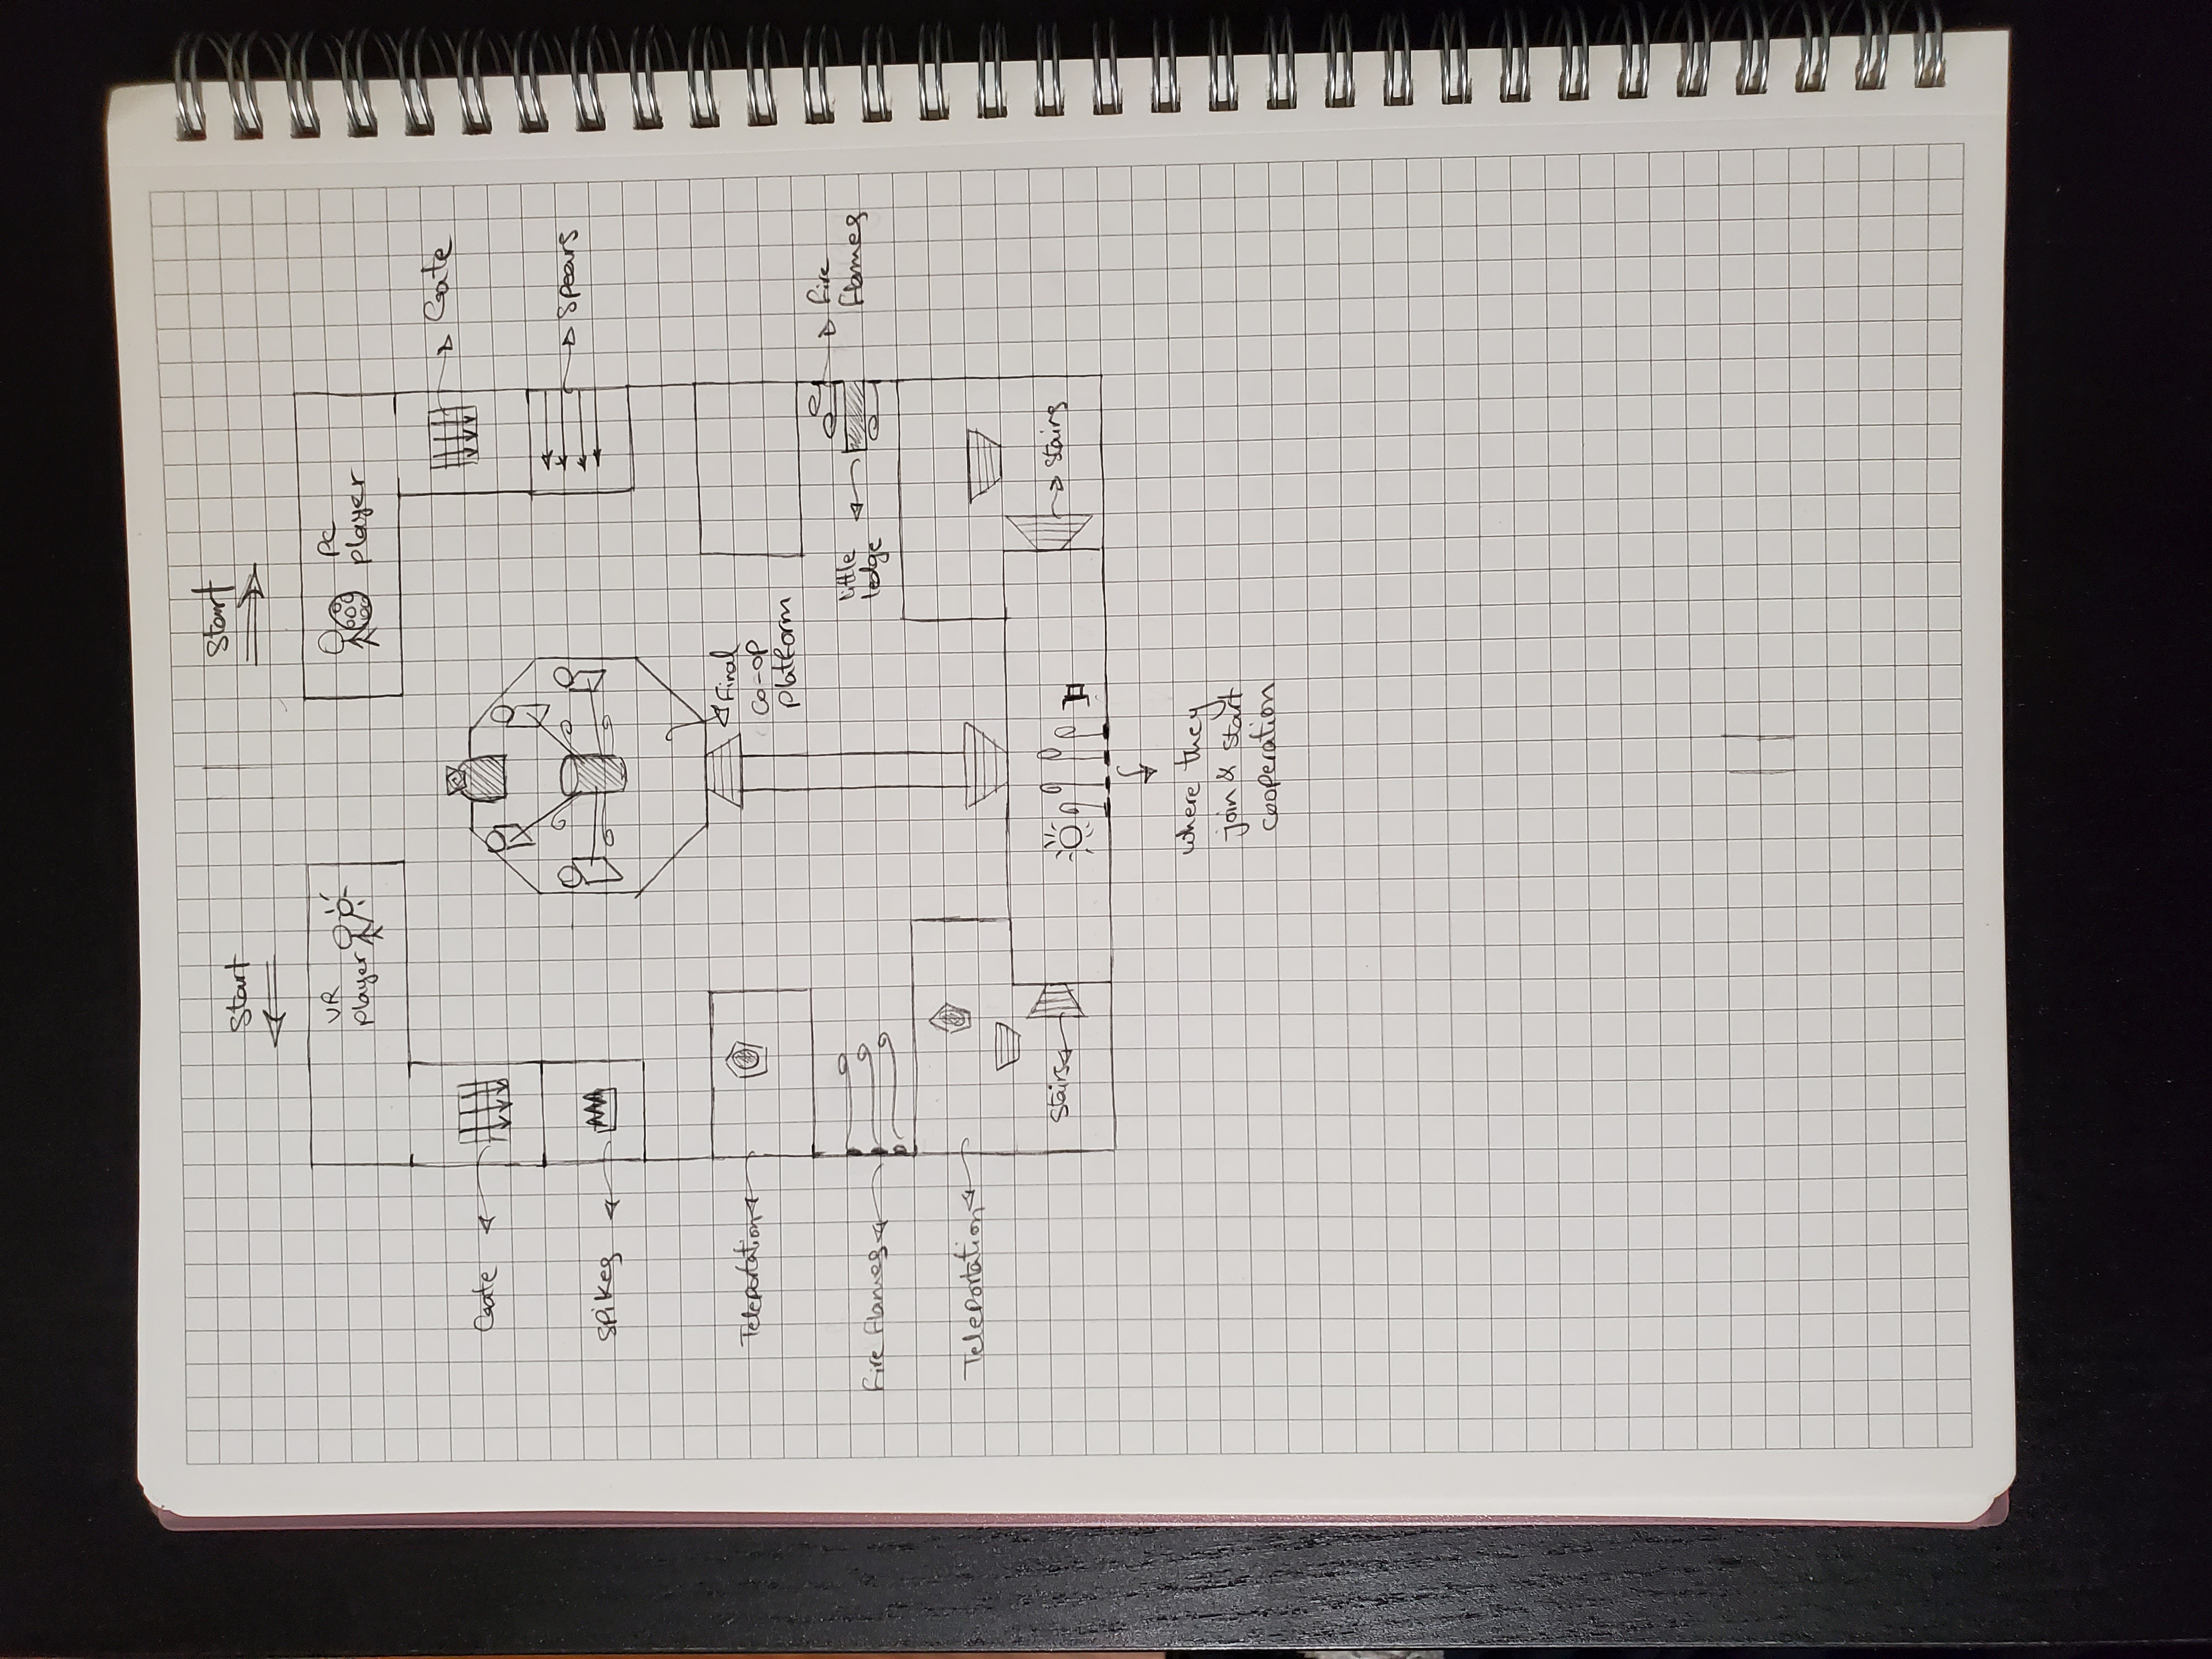 Start
Start
VR
player
PC
player
Gate
Gate
Spikes
Spears
Teleportation
Final
Co-op
Platform
Fire flames
little
ledge
Fire
flames
Teleportation
Stairs
Stairs
where they
join & start
cooperation